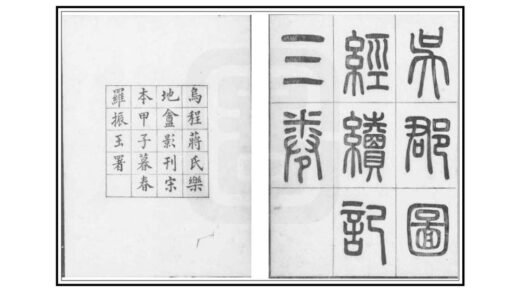 吳郡圖
經續記
三卷
烏程蔣氏樂
地盦影刊宋
本甲子暮春
羅振玉署